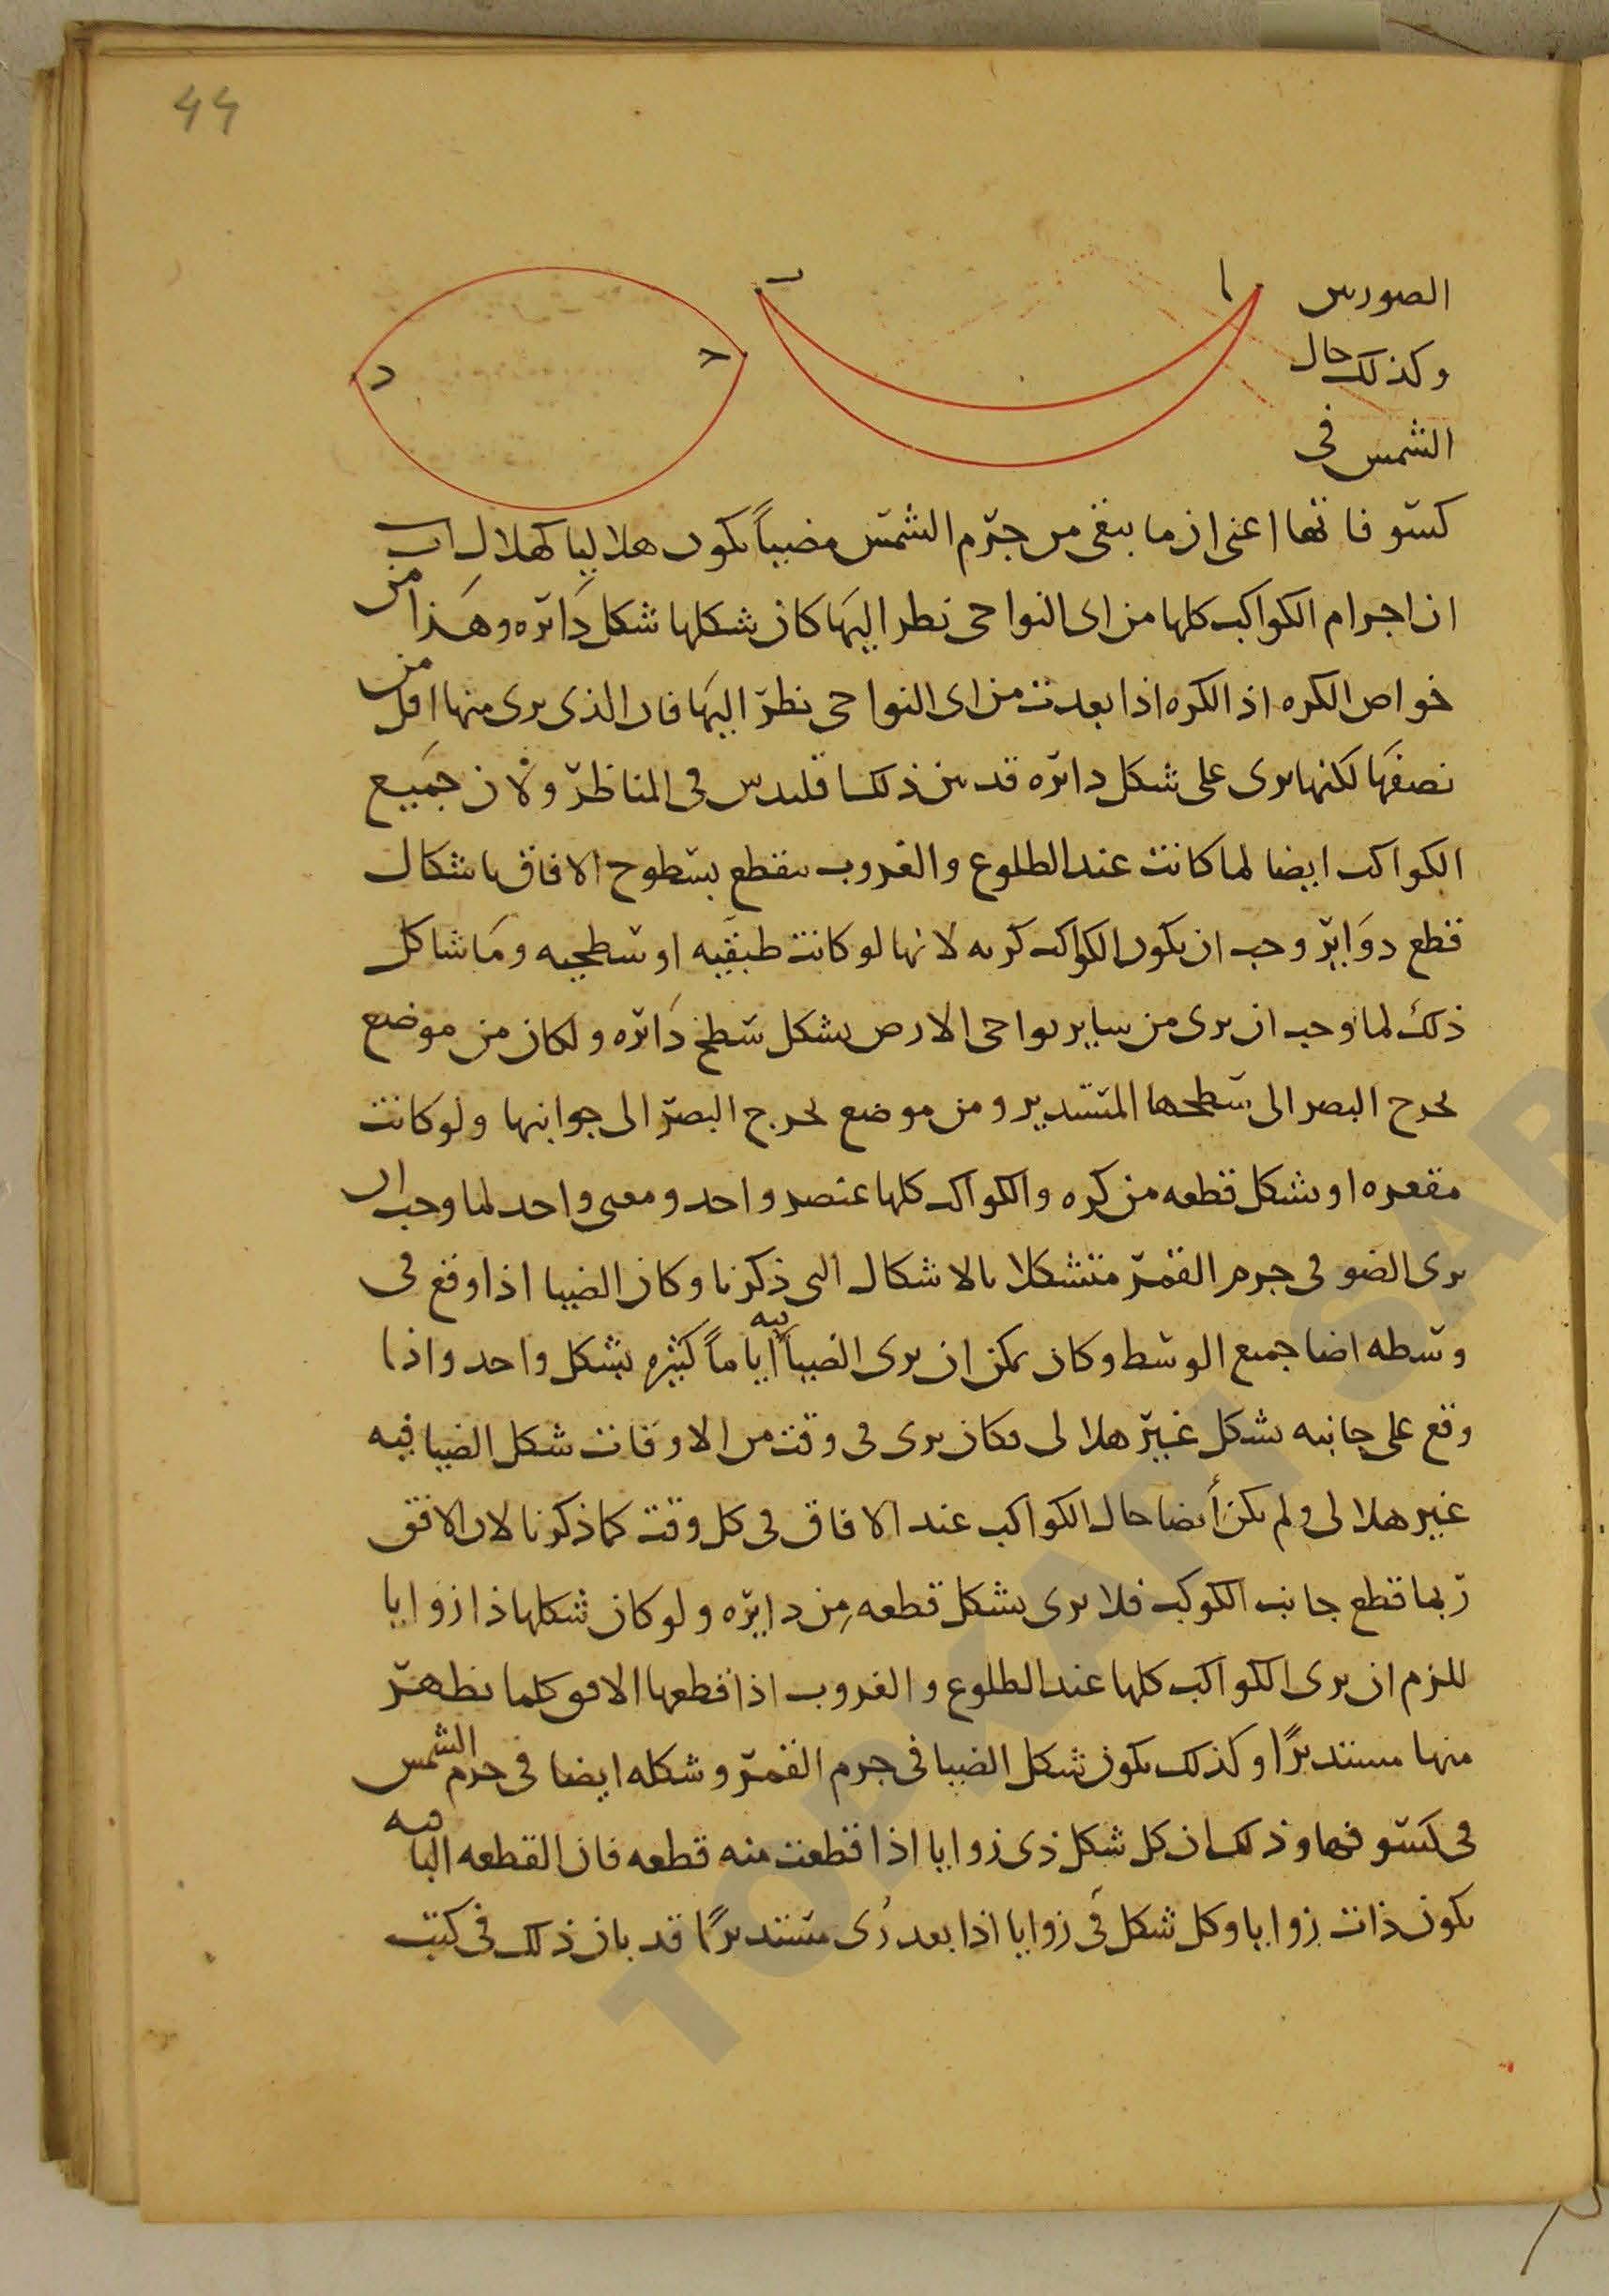 44
ا
ب
ح
د
الصورتين
وكذلك حال
الشمس في
كسوفاتها اعني ان ما يبقى من جرم الشمس مضيياً يكون هلاليا كهلال اب
ان اجرام الكواكب كلها من اى النواحى نظر اليها كان شكلها شكل دائره وهذا من
خواص الكره اذ الكره اذا بعدت من اى النواحى نظر اليها فان الذى يرى منها اقل من
نصفها لكنها يرى على شكل دائره قد بين ذلك اقليدس في المناظر ولان جميع
الكواكب ايضا لما كانت عند الطلوع والغروب ينقطع بسطوح الافاق باشكال
قطع دواير وجب ان يكون الكواكب كريه لانها لو كانت طبقيه او سطحيه وما شاكل
ذلك لما وجب ان يرى من ساير نواحى الارض بشكل سطح دائره ولكان من موضع
يخرج البصر الى سطحها المستدير ومن موضع يخرج البصر الى جوانبها ولو كانت
مقعره او بشكل قطعه من كره والكواكب كلها عنصر واحد ومعنى واحد لما وجب ان
يرى الضو في جرم القمر متشكلا بالاشكال التى ذكرنا وكان الضيا اذا وقع في
وسطه اضا جميع الوسط وكان يمكن ان يرى الضيا فيه اياماً كثيره بشكل واحد واذا
وقع على جانبه بشكل غير هلالى فكان يرى في وقت من الاوقات شكل الضيا فيه
غير هلالى ولم يكن أيضا حال الكواكب عند الافاق في كل وقت كما ذكرنا لان الافق
ربما قطع جانب الكوكب فلا يرى بشكل قطعه من دايره ولو كان شكلها ذا زوايا
للزم ان يرى الكواكب كلها عند الطلوع والغروب اذا قطعها الافق كلما يظهر
منها مستديرًا وكذلك يكون شكل الضيا في جرم القمر وشكله ايضا في جرم الشمس
في كسوفها وذلك ان كل شكل ذى زوايا اذا قطعت منه قطعه فان القطعه الباقيه
يكون ذات زوايا وكل شكل في زوايا اذا بعد رُى مستديرًا قد بان ذلك في كتب